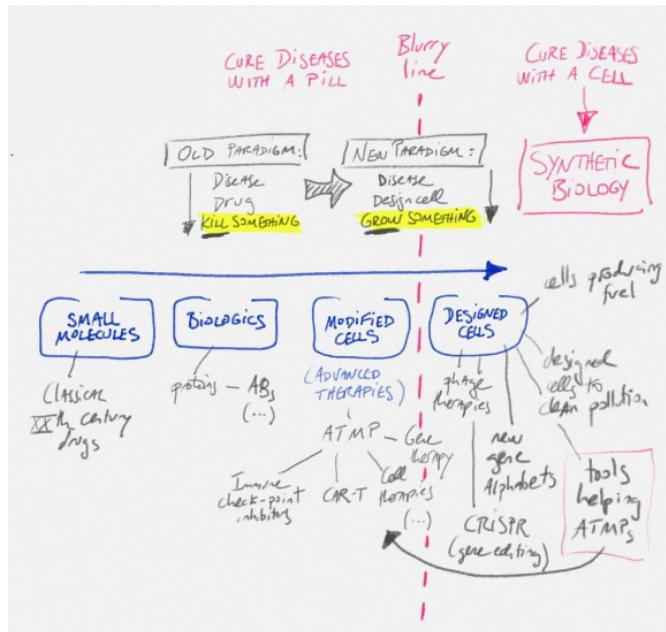 CURE DISEASES
WITH A PILL
Blurry
line
CURE DISEASES
WITH A CELL
OLD PARADIGM:
Disease
Drug
KILL SOMETHING
NEW PARADIGM:
Disease
Design cell
GROW SOMETHING
SYNTHETIC
BIOLOGY
SMALL
MOLECULES
BIOLOGICS
MODIFIED
CELLS
DESIGNED
CELLS
Classical
XXth century
drugs
proteins – ABs
(...)
(ADVANCED
THERAPIES)
ATMP
Gene
therapy
Immune
check-point
inhibitors
CAR-T
Cell
therapies
(...)
phage
therapies
CRISPR
(gene editing)
new
gene
Alphabets
cells producing
fuel
designed
cells to
clean pollution
tools
helping
ATMPs